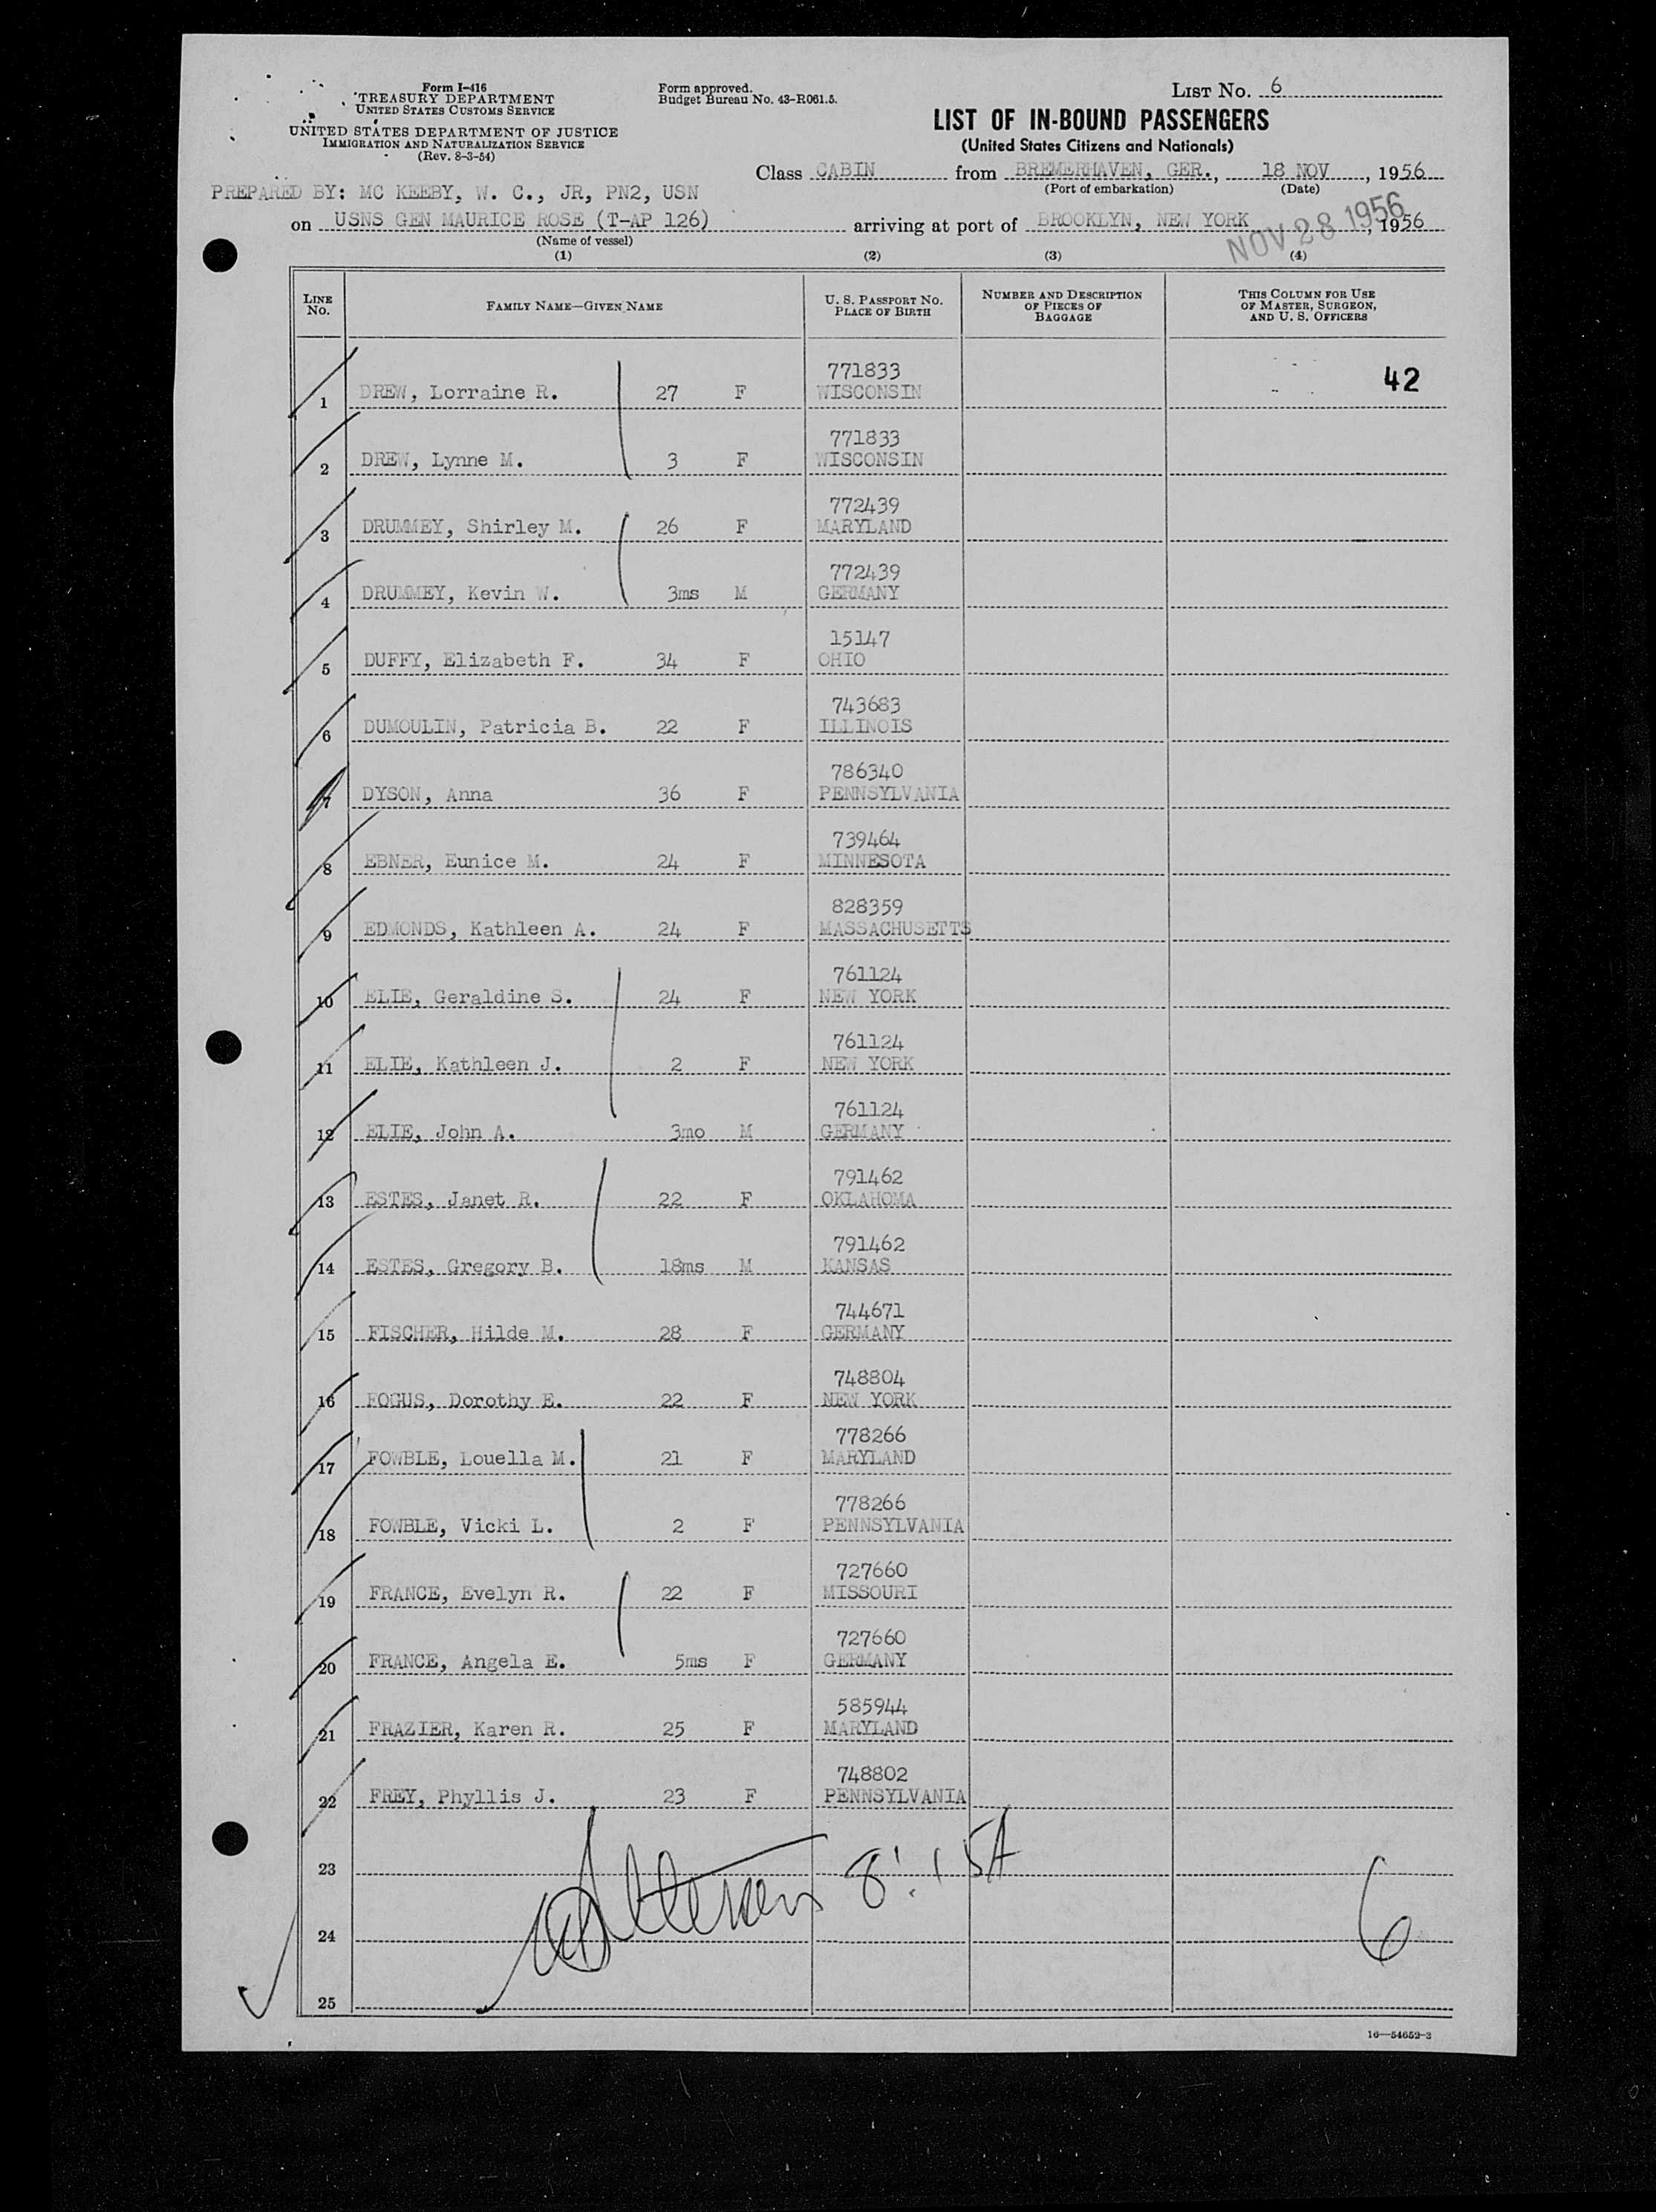 Form I-416
TREASURY DEPARTMENT
UNITED STATES CUSTOMS SERVICE
UNITED STATES DEPARTMENT OF JUSTICE
IMMIGRATION AND NATURALIZATION SERVICE
(Rev. 8-3-54)
Form approved.
Budget Bureau No. 43-R061.5.
LIST NO. 6
LIST OF IN-BOUND PASSENGERS
(United States Citizens and Nationals)
Class CABIN from BREMERHAVEN, GER., 18 NOV, 1956
(Port of embarkation) (Date)
PREPARED BY: MC KEEBY, W. C., JR, PN2, USN
on USNS GEN MAURICE ROSE (T-AP 126) arriving at port of BROOKLYN, NEW YORK, 1956
NOV 28 1956
(Name of vessel)
(1) (2) (3) (4)
LINE NO. FAMILY NAME—GIVEN NAME U. S. PASSPORT NO. PLACE OF BIRTH NUMBER AND DESCRIPTION OF PIECES OF BAGGAGE THIS COLUMN FOR USE OF MASTER, SURGEON, AND U. S. OFFICERS
771833 42
1 DREW, Lorraine R. 27 F WISCONSIN
771833
2 DREW, Lynne M. 3 F WISCONSIN
772439
3 DRUMMEY, Shirley M. 26 F MARYLAND
772439
4 DRUMMEY, Kevin W. 3ms M GERMANY
15147
5 DUFFY, Elizabeth F. 34 F OHIO
743683
6 DUMOULIN, Patricia B. 22 F ILLINOIS
786340
7 DYSON, Anna 36 F PENNSYLVANIA
739464
8 EBNER, Eunice M. 24 F MINNESOTA
828359
9 EDMONDS, Kathleen A. 24 F MASSACHUSETTS
761124
10 ELIE, Geraldine S. 24 F NEW YORK
761124
11 ELIE, Kathleen J. 2 F NEW YORK
761124
12 ELIE, John A. 3mo M GERMANY
791462
13 ESTES, Janet R. 22 F OKLAHOMA
791462
14 ESTES, Gregory B. 18ms M KANSAS
744671
15 FISCHER, Hilde M. 28 F GERMANY
748804
16 FOGUS, Dorothy E. 22 F NEW YORK
778266
17 FOWBLE, Louella M. 21 F MARYLAND
778266
18 FOWBLE, Vicki L. 2 F PENNSYLVANIA
727660
19 FRANCE, Evelyn R. 22 F MISSOURI
727660
20 FRANCE, Angela E. 5ms F GERMANY
585944
21 FRAZIER, Karen R. 25 F MARYLAND
748802
22 FREY, Phyllis J. 23 F PENNSYLVANIA
23 8:15A
24 6
25
16—54652-3